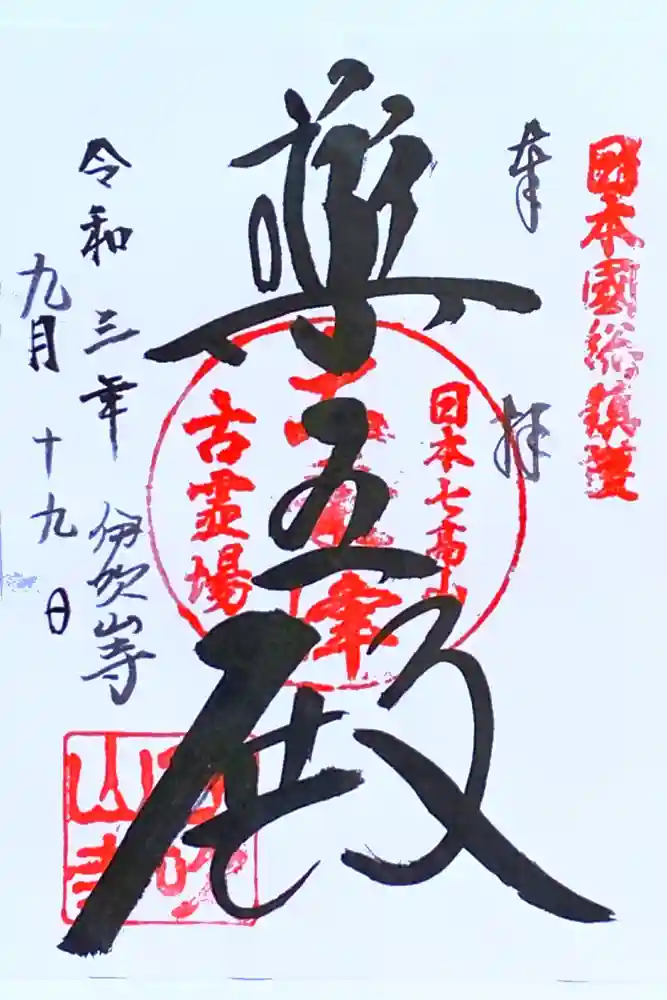 日本國総鎮護
奉拝
日本七高山
古霊場
薬王殿
伊吹山寺
令和三年
九月十九日
伊吹
山寺